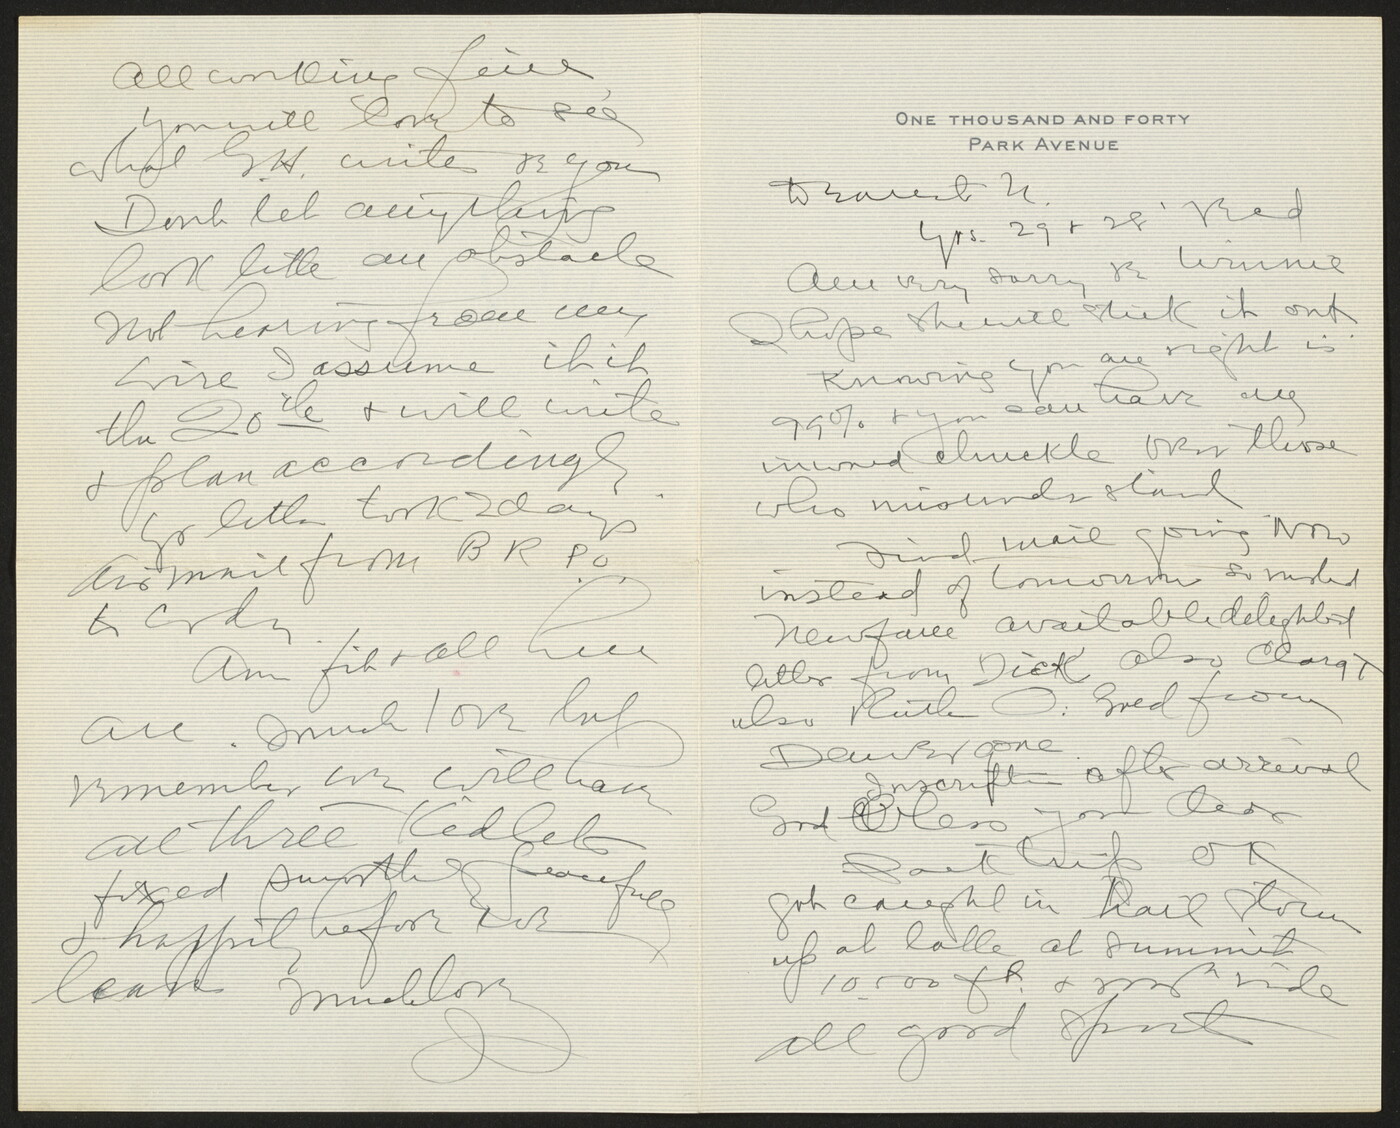 ONE THOUSAND AND FORTY
PARK AVENUE
Dearest N.
Yrs. 29 + 28 Recd
Am very sorry re Winnie
I hope she will stick it out
Knowing you are right is
99% + you can have an
inward chuckle over those
who misunderstand
Find mail going Now
instead of tomorrow so
New available delighted
letter from Dick also
also Ruth O:
Denver gone
Inscription after arrival
God Bless you dear
Pack trip OK
got caught in hail storm
up at lake at summit
10,500 ft. + ride
all good sport
All working fine
You will love to see
what G.H. writes re you
Dont let anything
look like an obstacle
Not hearing from my
wire I assume it is
the 20th + will write
+ plan accordingly
Yr letter took 2 days
Air mail from B R P.O.
to Cody.
Am fit + all here
are. Much love but
remember we will have
all three Kidlets
fixed smoothly peacefully
+ happily before we
leave Much love
J